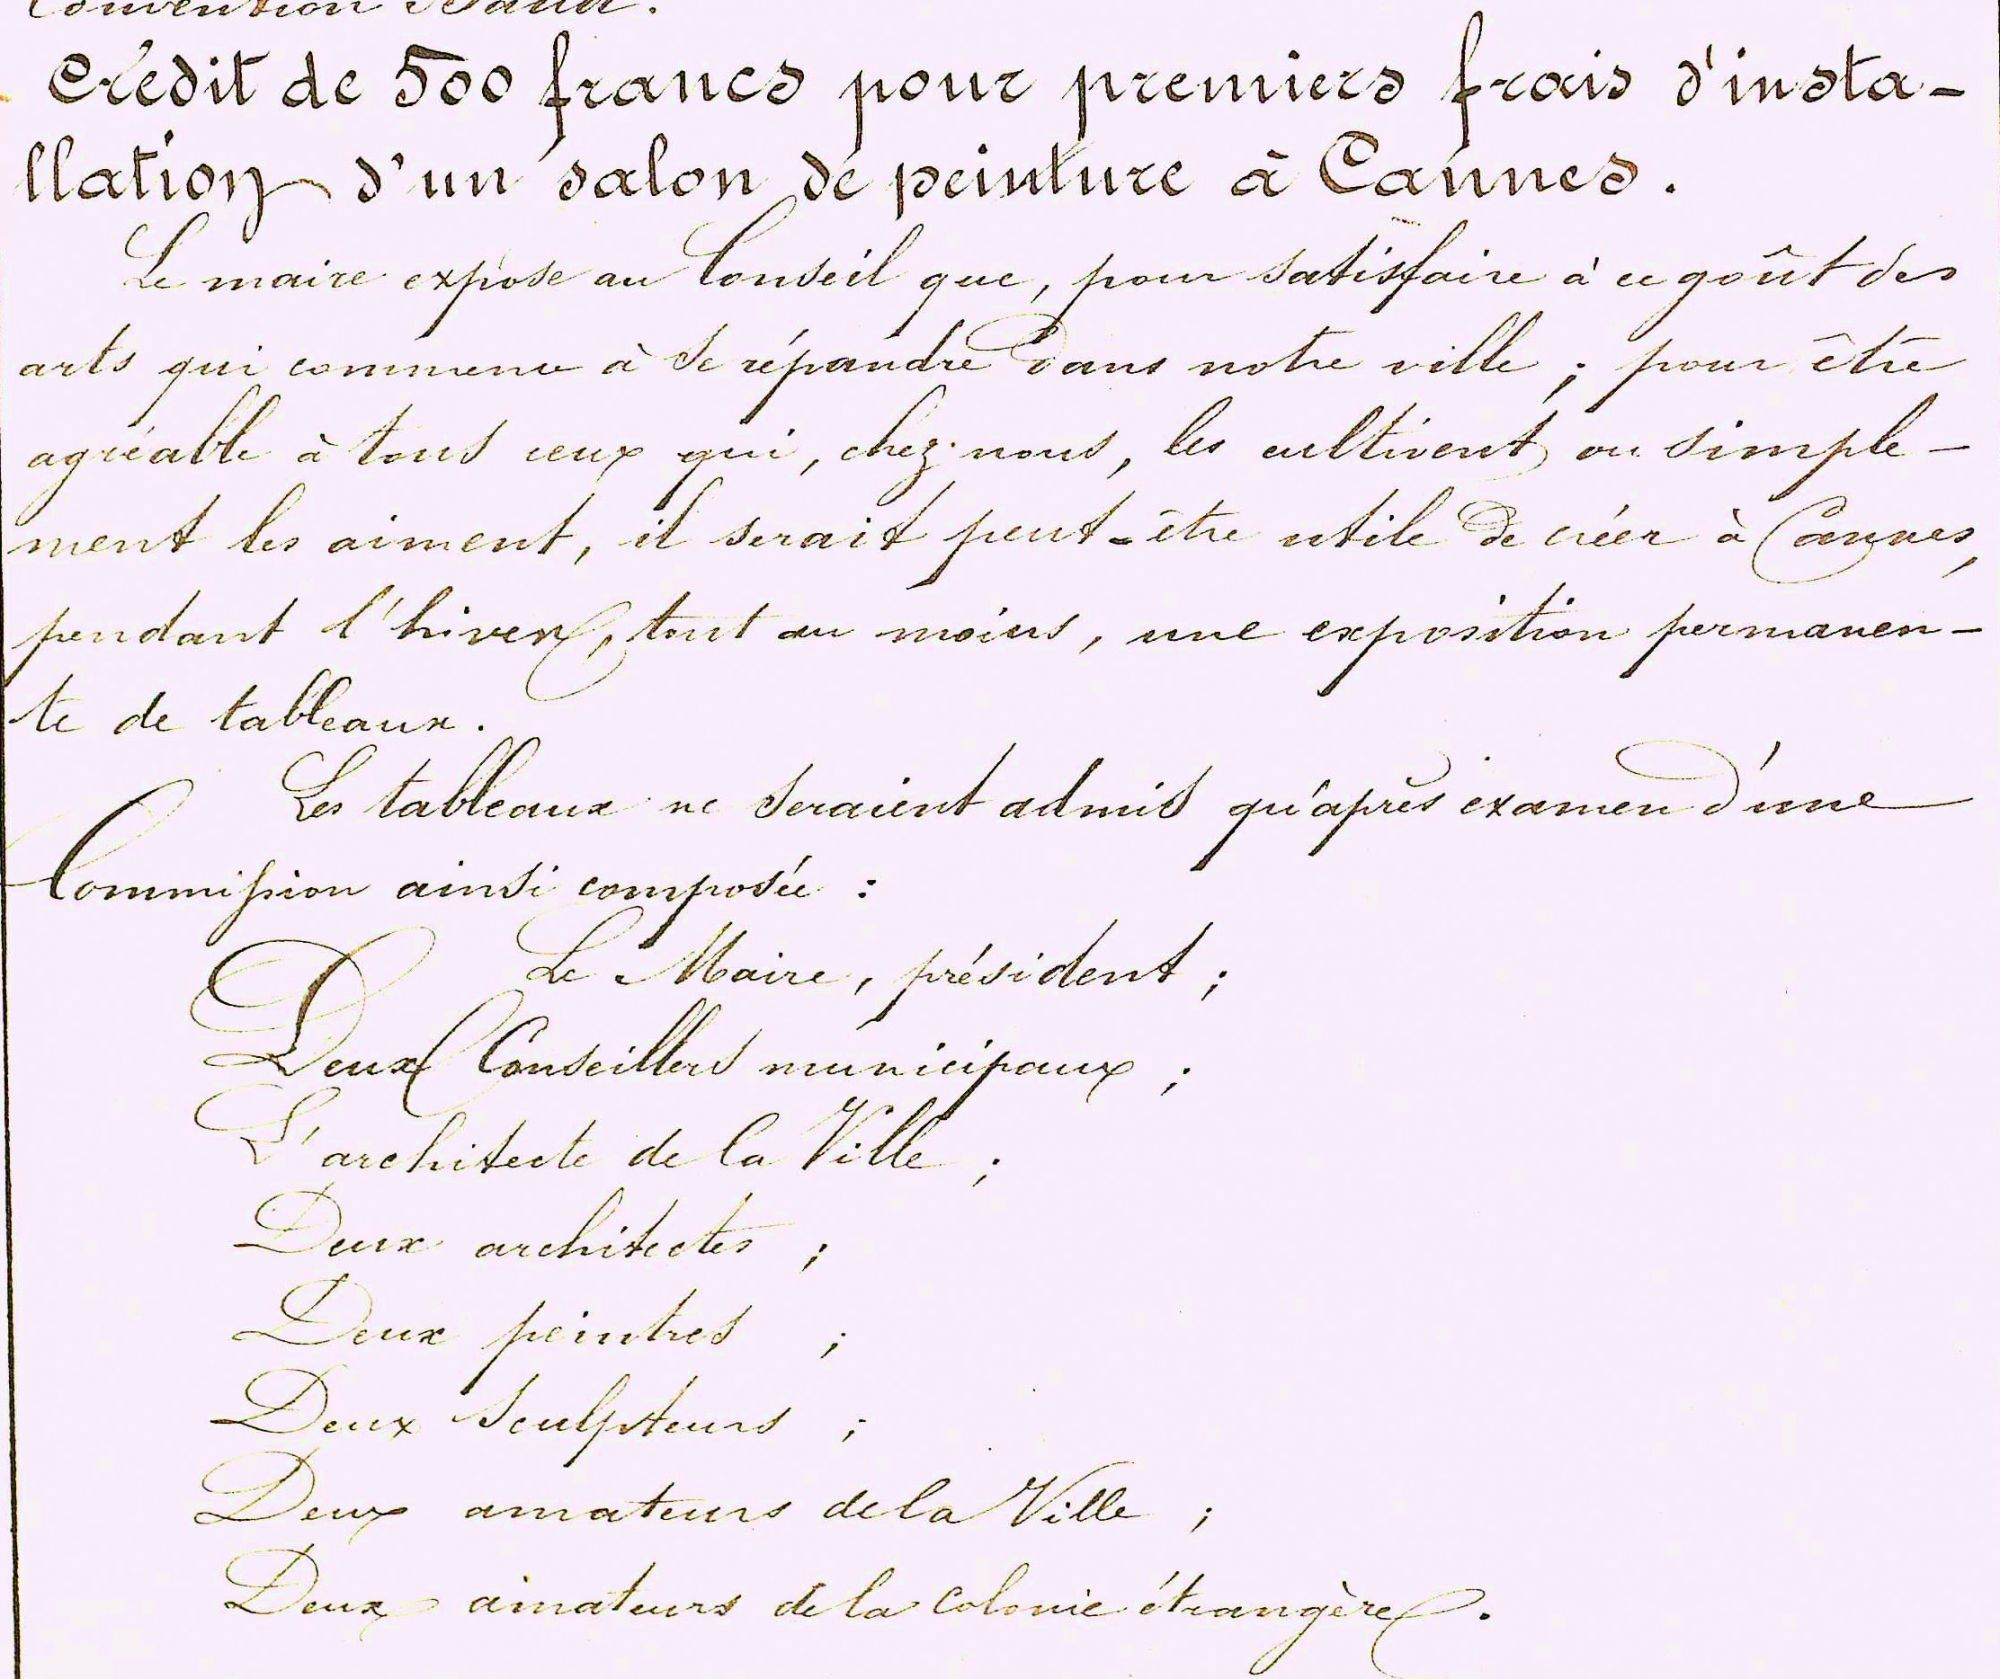 Convention
Crédit de 500 francs pour premiers frais d'insta-
llation d'un salon de peinture à Cannes.
Le maire expose au Conseil que, pour satisfaire à ce goût des
arts qui commence à se répandre dans notre ville ; pour être
agréable à tous ceux qui, chez nous, les cultivent ou simple-
ment les aiment, il serait peut-être utile de créer à Cannes,
pendant l'hiver, tout au moins, une exposition permanen-
te de tableaux.
Les tableaux ne seraient admis qu'après examen d'une
Commission ainsi composée :
Le Maire, président ;
Deux Conseillers municipaux ;
L'architecte de la Ville ;
Deux architectes ;
Deux peintres ;
Deux sculpteurs ;
Deux amateurs de la Ville ;
Deux amateurs de la colonie étrangère.